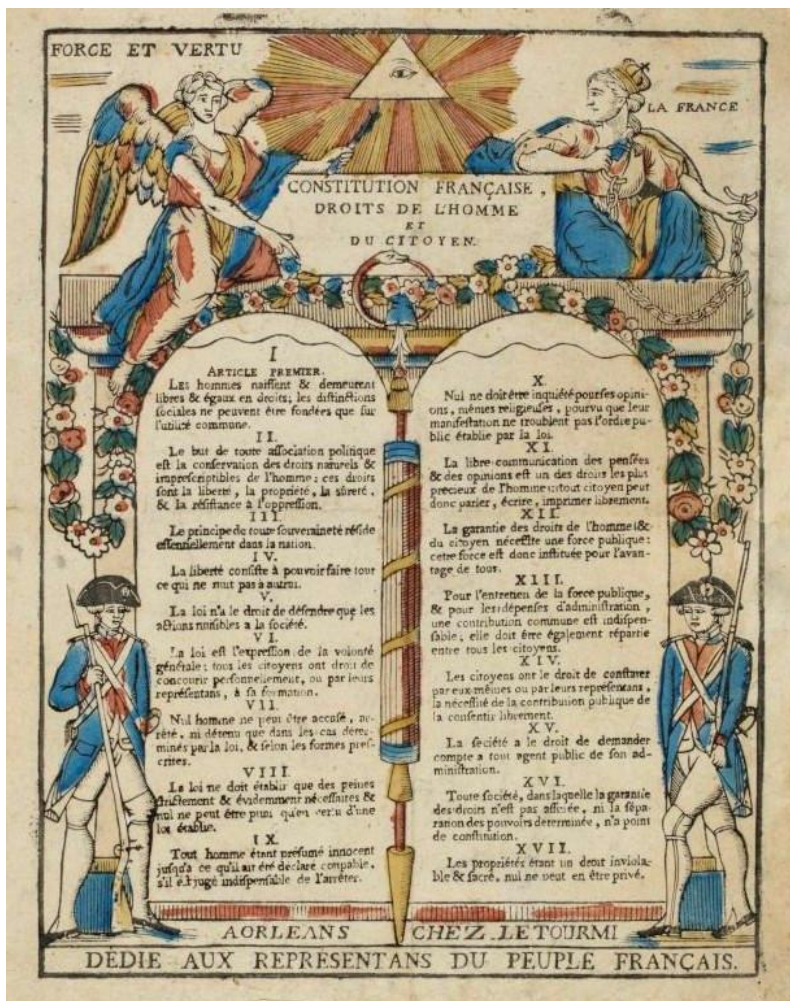 FORCE ET VERTU
LA FRANCE
CONSTITUTION FRANÇAISE,
DROITS DE L'HOMME
ET
DU CITOYEN.
I
ARTICLE PREMIER.
Les hommes naissent & demeurent
libres & égaux en droits; les distinctions
sociales ne peuvent être fondées que sur
l'utilité commune.
II.
Le but de toute association politique
est la conservation des droits naturels &
imprescriptibles de l'homme; ces droits
sont la liberté, la propriété, la sûreté,
& la résistance à l'oppression.
III.
Le principe de toute souveraineté réside
essentiellement dans la nation.
IV.
La liberté consiste à pouvoir faire tout
ce qui ne nuit pas à autrui.
V.
La loi n'a le droit de défendre que les
actions nuisibles a la société.
VI.
La loi est l'expression de la volonté
générale; tous les citoyens ont droit de
concourir personnellement, ou par leurs
représentans, à sa formation.
VII.
Nul homme ne peut être accusé, ar-
rêté, ni détenu que dans les cas déter-
minés par la loi, & selon les formes pres-
crites.
VIII.
La loi ne doit établir que des peines
strictement & évidemment nécessaires &
nul ne peut être puni qu'en vertu d'une
loi établie.
IX.
Tout homme étant présumé innocent
jusqu'a ce qu'il ait été déclare coupable,
s'il est jugé indispensable de l'arrêter.
X.
Nul ne doit être inquiété pour ses opini-
ons, mêmes religieuses, pourvu que leur
manifestation ne troublent pas l'ordre pu-
blic établie par la loi.
XI.
La libre communication des pensées
& des opinions est un des droits les plus
précieux de l'homme: tout citoyen peut
donc parler, écrire, imprimer librement.
XII.
La garantie des droits de l'homme &
du citoyen nécessite une force publique:
cette force est donc instituée pour l'avan-
tage de tous.
XIII.
Pour l'entretien de la force publique,
& pour les dépenses d'administration,
une contribution commune est indispen-
sable; elle doit être également répartie
entre tous les citoyens.
XIV.
Les citoyens ont le droit de constater
par eux-mêmes ou par leurs représentans,
la nécessité de la contribution publique de
la consentir librement.
XV.
La société a le droit de demander
compte a tout agent public de son ad-
ministration.
XVI.
Toute société, dans laquelle la garantie
des droits n'est pas assurée, ni la sépa-
ration des pouvoirs determinée, n'a point
de constitution.
XVII.
Les propriétés étant un droit inviola-
ble & sacré, nul ne peut en être privé.
A ORLEANS CHEZ LETOURMI
DÉDIE AUX REPRESENTANS DU PEUPLE FRANÇAIS.